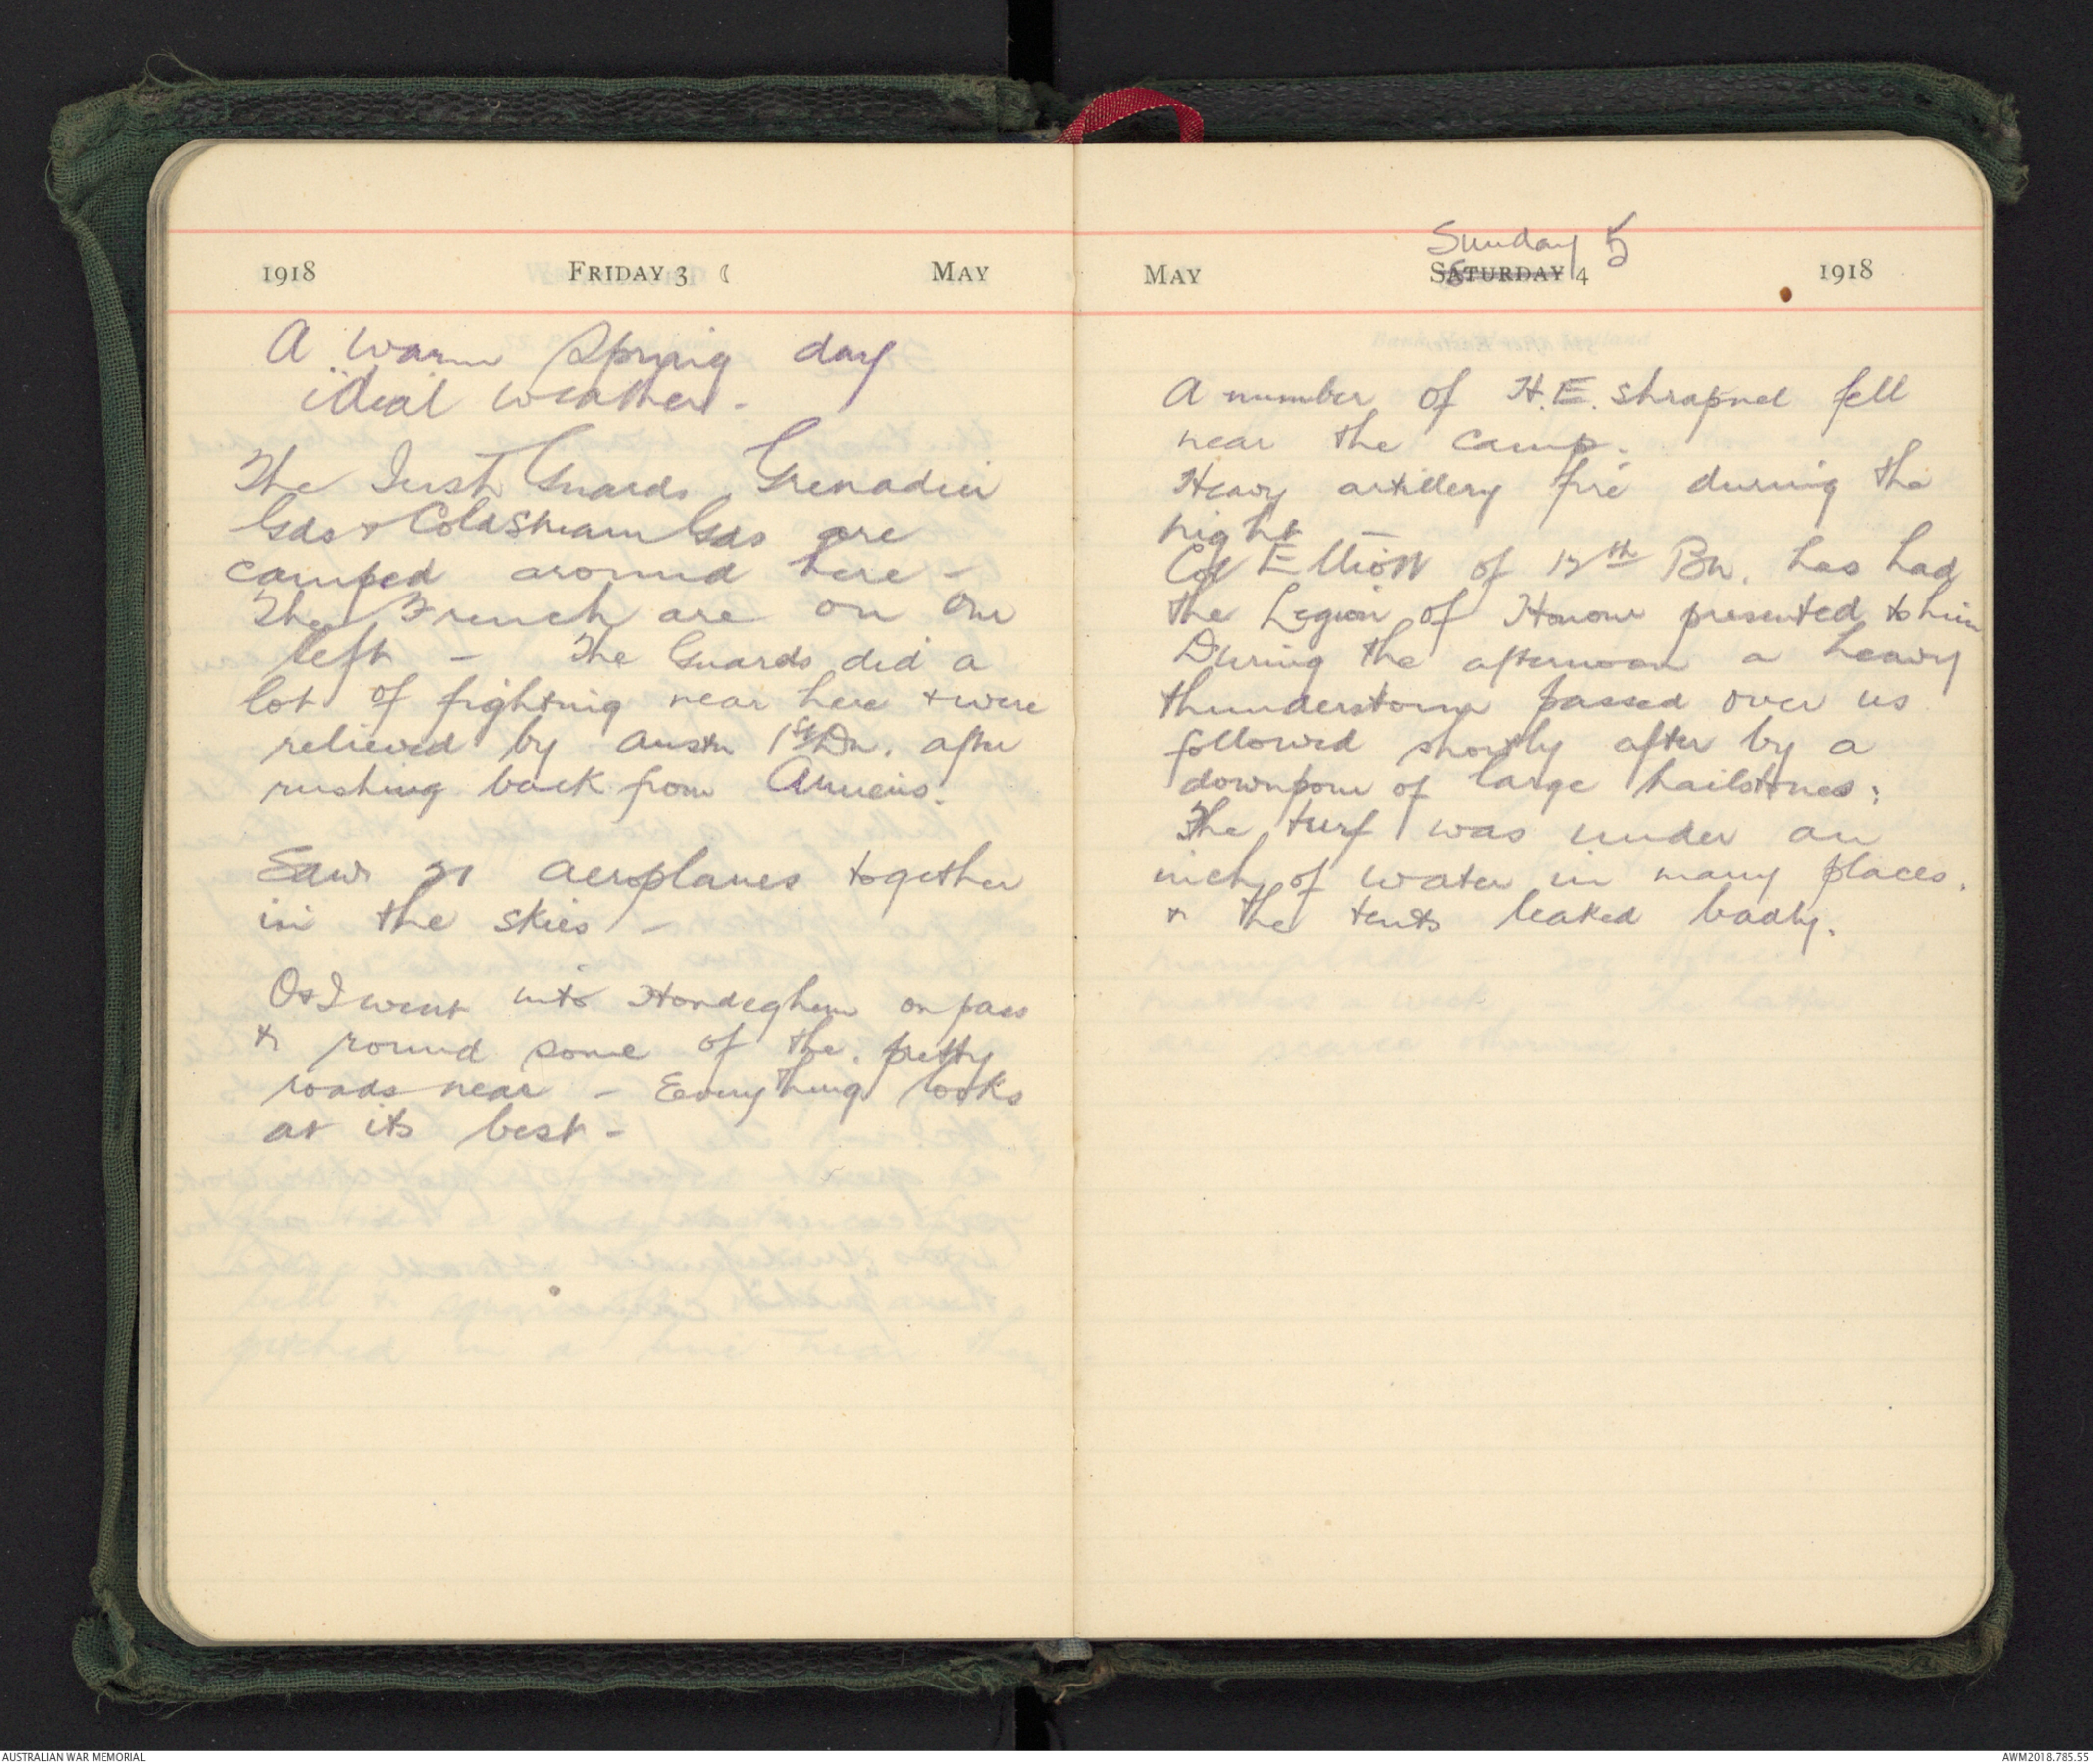 1918 FRIDAY 3 ☾ MAY
A warm Spring day
ideal weather -
The Irish Guards, Grenadier
Gds & Coldstream Gds are
camped around here -
The French are on our
left - The Guards did a
lot of fighting near here & were
relieved by Austn 1st Dn. after
rushing back from Amiens.
Saw 21 aeroplanes together
in the skies -
O & I went into Hondeghem on pass
& round some of the pretty
roads near - Everything looks
at its best -
Sunday 5
MAY SATURDAY 4 1918
A number of H.E. shrapnel fell
near the camp.
Heavy artillery fire during the
night -
Col Elliott of 12th Bn. has had
the Legion of Honour presented to him
During the afternoon a heavy
thunderstorm passed over us
followed shortly after by a
downpour of large hailstones;
The turf was under an
inch of water in many places.
& the tents leaked badly.
AUSTRALIAN WAR MEMORIAL
AWM2018.785.55